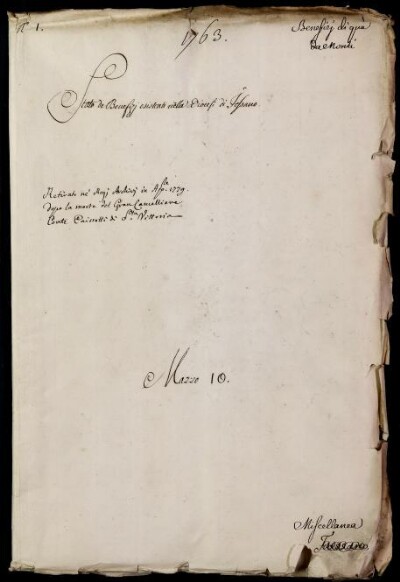 N. 1.
Benefizj di quà
da Monti
1763.
Stato de Benefizj esistenti nella Diocesi di Fossano
Ritirato ne' Regj Archivj in 1779.
dopo la morte del Gran Cancelliere
Conte Caissotti di S.ta Vittoria
Mazzo 10.
Miscellanea